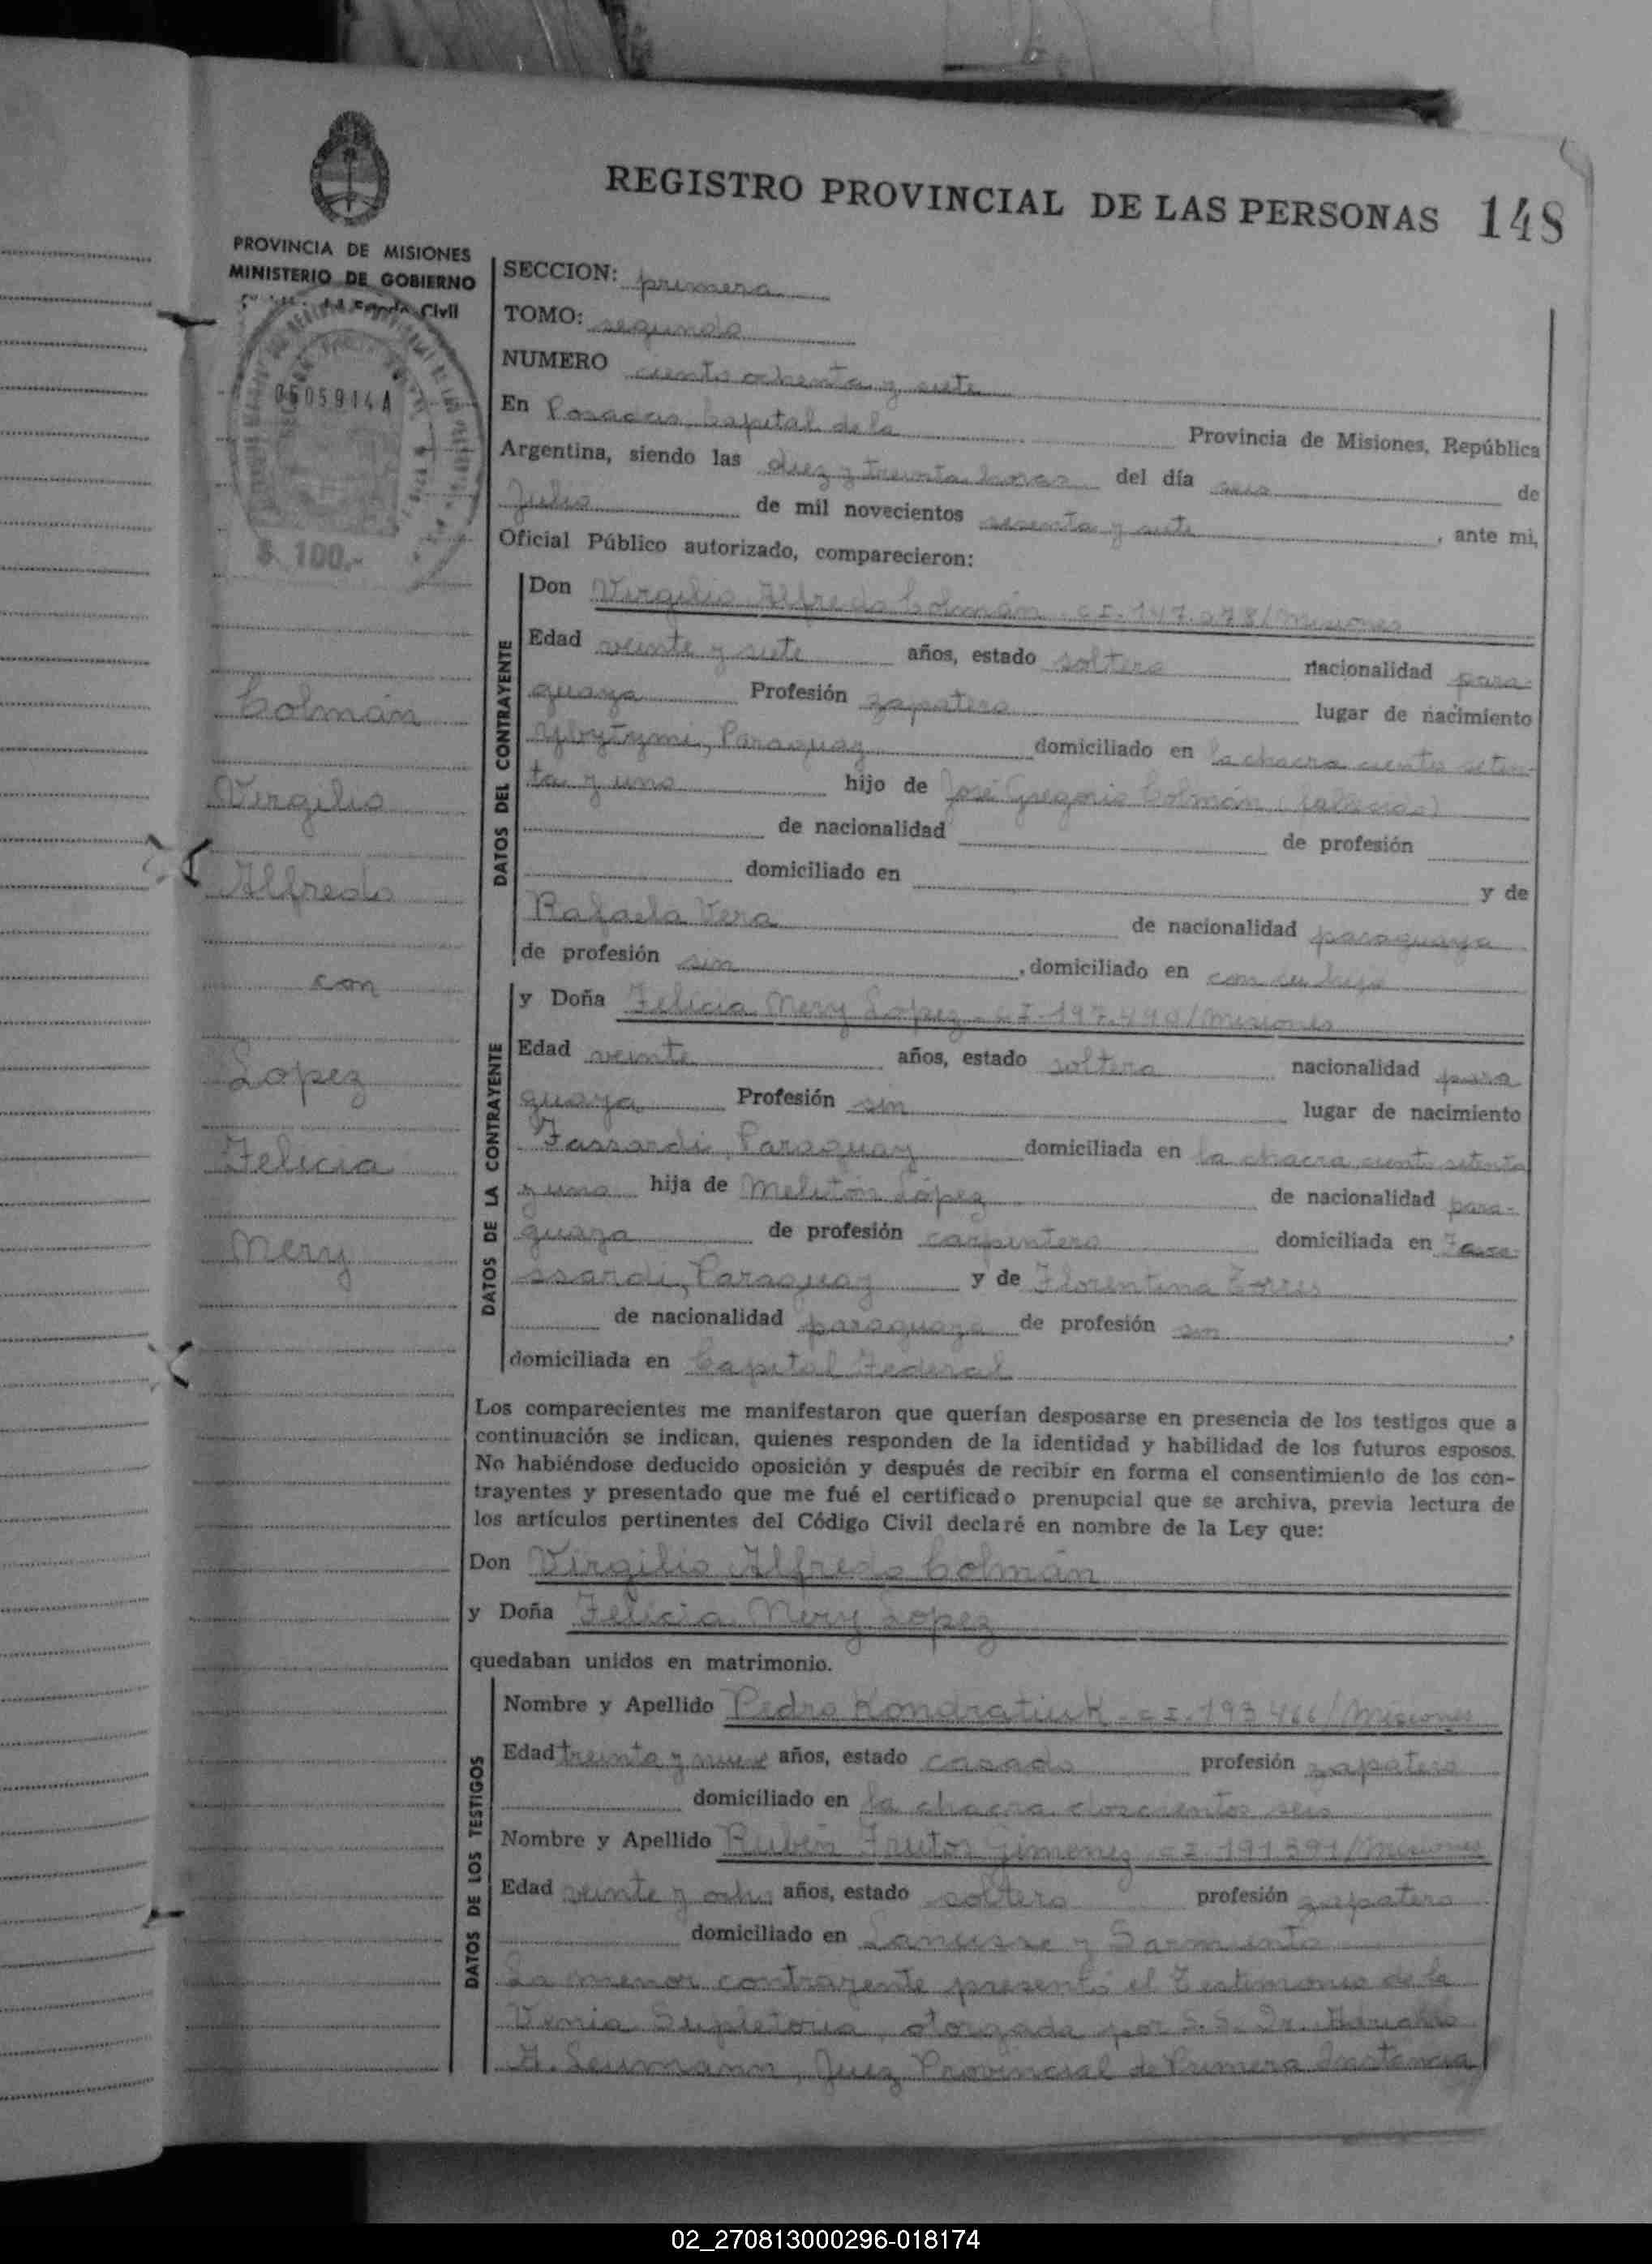 REGISTRO PROVINCIAL DE LAS PERSONAS 148
PROVINCIA DE MISIONES
MINISTERIO DE GOBIERNO
Civil
0505914A
$ 100.-
Colmán
Virgilio
Alfredo
con
Lopez
Felicia
Mery
SECCION: primera
TOMO: segundo
NUMERO ciento ochenta y siete
En Posadas, Capital de la Provincia de Misiones, República
Argentina, siendo las diez y treinta horas del día seis de
Julio de mil novecientos sesenta y siete, ante mi,
Oficial Público autorizado, comparecieron:
DATOS DEL CONTRAYENTE
Don Virgilio Alfredo Colmán - C I - 147.078/Misiones
Edad veinte y siete años, estado soltero nacionalidad para-
guaya Profesión zapatero lugar de nacimiento
Ybytymi, Paraguay domiciliado en la chacra ciento seten-
ta y uno hijo de José Gregorio Colmán (fallecido)
de nacionalidad de profesión
domiciliado en y de
Rafaela Vera de nacionalidad paraguaya
de profesión sin, domiciliado en con su hijo
DATOS DE LA CONTRAYENTE
y Doña Felicia Mery Lopez - C I - 197.490/Misiones
Edad veinte años, estado soltera nacionalidad para
guaya Profesión sin lugar de nacimiento
Fassardi, Paraguay domiciliada en la chacra ciento setenta
y uno hija de Melitón López de nacionalidad para-
guaya de profesión carpintero domiciliada en
ssardi, Paraguay y de Florentina Torres
de nacionalidad paraguaya de profesión sin,
domiciliada en Capital Federal
Los comparecientes me manifestaron que querían desposarse en presencia de los testigos que a
continuación se indican, quienes responden de la identidad y habilidad de los futuros esposos.
No habiéndose deducido oposición y después de recibir en forma el consentimiento de los con-
trayentes y presentado que me fué el certificado prenupcial que se archiva, previa lectura de
los artículos pertinentes del Código Civil declaré en nombre de la Ley que:
Don Virgilio Alfredo Colmán
y Doña Felicia Mery Lopez
quedaban unidos en matrimonio.
DATOS DE LOS TESTIGOS
Nombre y Apellido Pedro Kondratiuk - C I - 193.466/Misiones
Edad treinta y nueve años, estado casado profesión zapatero
domiciliado en la chacra doscientos seis
Nombre y Apellido Rubén Frutos Gimenez - C I - 191.391/Misiones
Edad veinte y ocho años, estado soltero profesión zapatero
domiciliado en Lanusse y Sarmiento
La menor contrayente presentó el Testimonio de la
Venia Supletoria, otorgada por S.S. Dr.
Juez Provincial de Primera Instancia
02_270813000296-018174